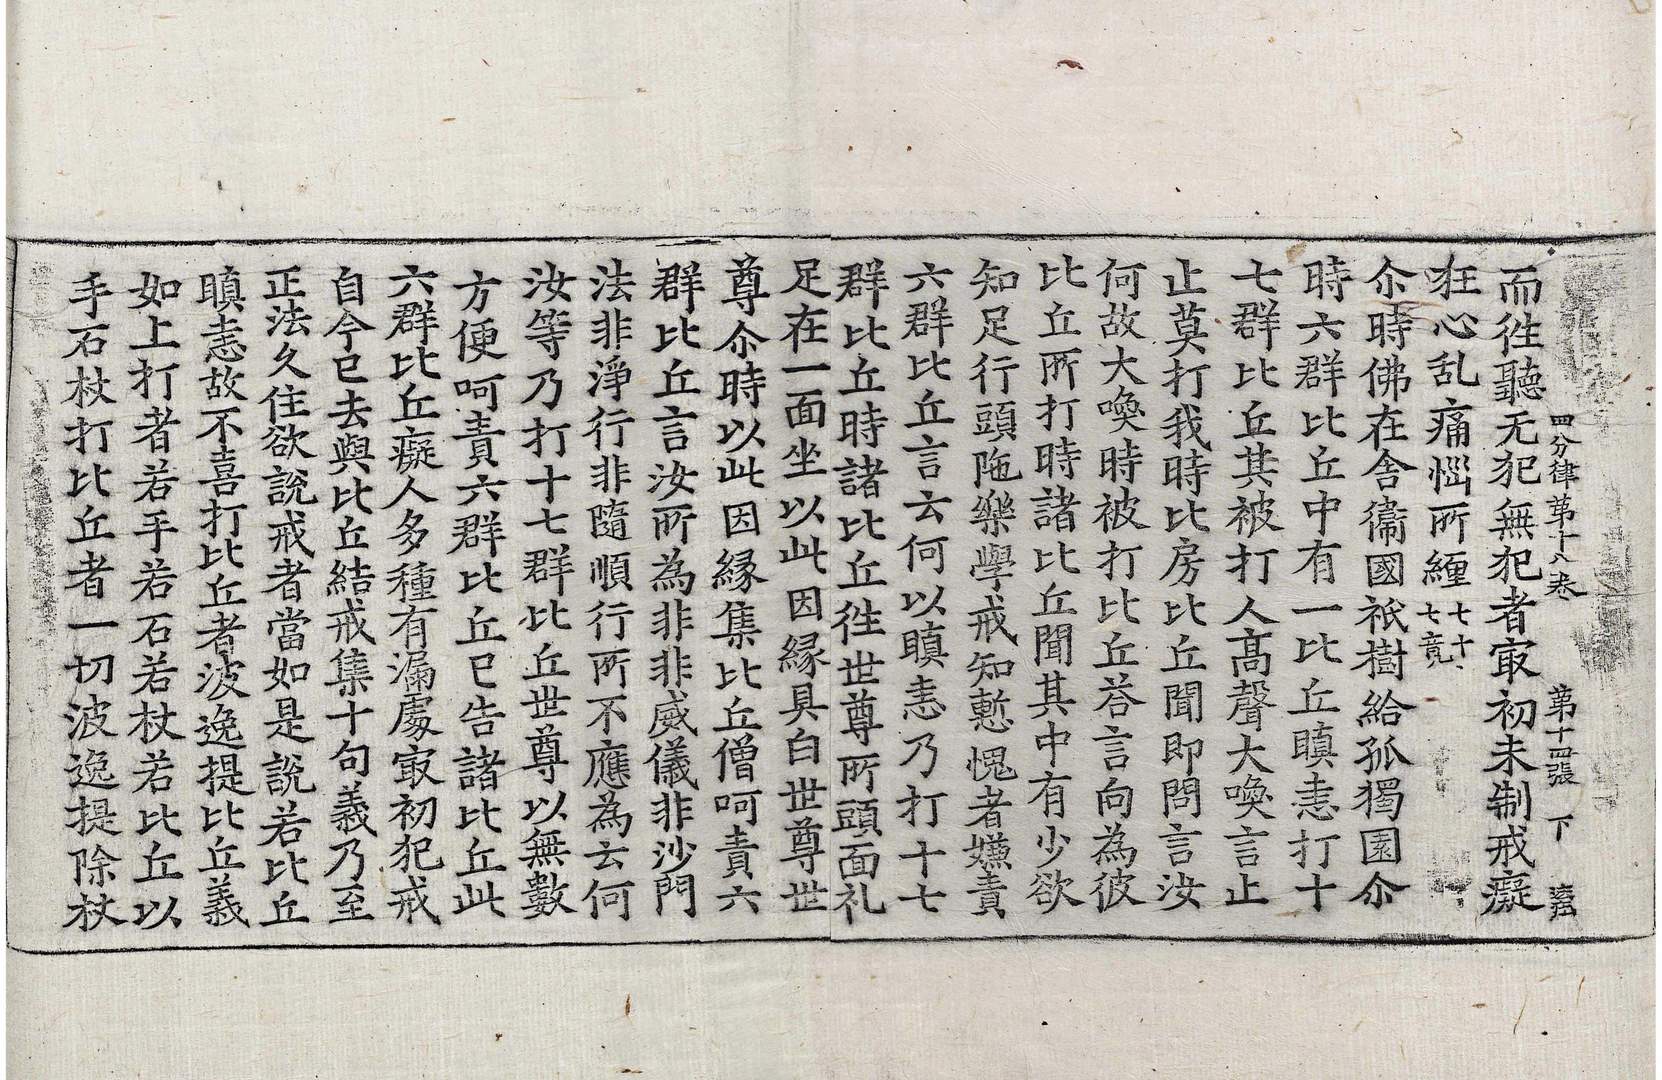 四分律第十八卷 第十四張 下
而徃聽无犯無犯者冣初未制戒癡
狂心乱痛惱所纏七十七竟
尒時佛在舍衞國祇樹給孤獨園尒
時六群比丘中有一比丘瞋恚打十
七群比丘其被打人髙聲大喚言止
止莫打我時比房比丘聞即問言汝
何故大喚時被打比丘荅言向為彼
比丘所打時諸比丘聞其中有少欲
知足行頭陁樂學戒知慙愧者嫌責
六群比丘言云何以瞋恚乃打十七
群比丘時諸比丘徃世尊所頭面礼
足在一面坐以此因緣具白世尊世
尊尒時以此因緣集比丘僧呵責六
群比丘言汝所為非非威儀非沙門
法非淨行非隨順行所不應為云何
汝等乃打十七群比丘世尊以無數
方便呵責六群比丘已告諸比丘此
六群比丘癡人多種有漏處冣初犯戒
自今已去與比丘結戒集十句義乃至
正法久住欲說戒者當如是說若比丘
瞋恚故不喜打比丘者波逸提比丘義
如上打者若手若石若杖若比丘以
手石杖打比丘者一切波逸提除杖